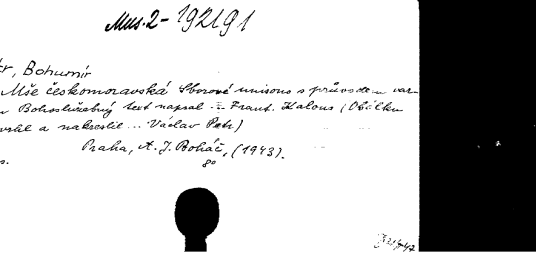 Mus. 2 - 192191
tr, Bohumír
Mše českomoravská Sborové unisono s průvodem var-
Bohoslužebný text napsal ... Frant. Kalous (Obálku
vrhl a nakreslil ... Václav Petr)
Praha, A. J. Boháč, (1943).
8°
s.